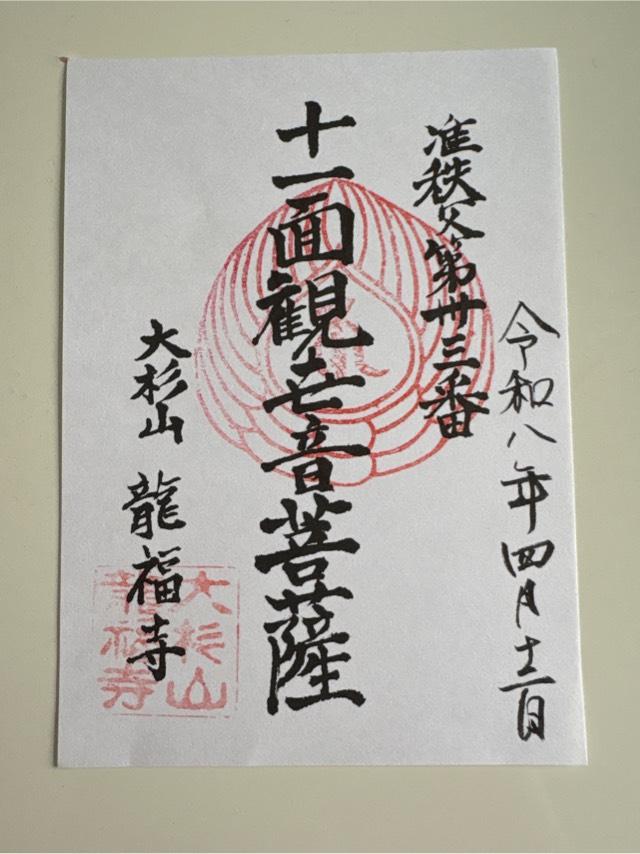 令和八年四月十二日
准秩父第卅三番
十一面観世音菩薩
大杉山 龍福寺
大杉山
龍福寺